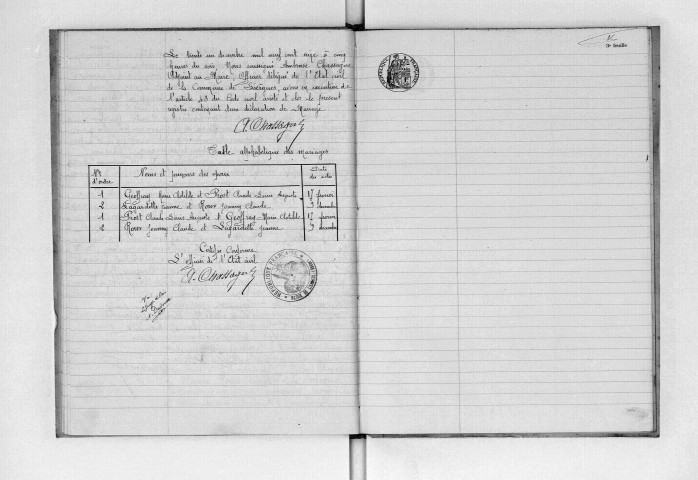 Le trente un décembre mil neuf cent onze à cinq
heures du soir, Nous soussigné Ambroise Chassagne
Adjoint au Maire, Officier délégué de l'Etat civil
de la Commune de avons en exécution de
l'article 43 du Code civil arrêté et clos le présent
registre contenant deux déclarations de Mariage
A. Chassagne
Table alphabétique des mariages
Nos d'ordre
Noms et prénoms des époux
Date des actes
1 Geoffray Marie Clotilde et Piot Claude Louis Auguste 17 février
2 Lagardette Jeanne et Roser Joanny Claude 9 décembre
1 Piot Claude Louis Auguste & Geoffray Marie Clotilde 17 février
2 Roser Joanny Claude et Lagardette Jeanne 9 décembre
Certifié Conforme
L'officier de l'Etat civil
A. Chassagne
REPUBLIQUE FRANÇAISE
3e feuille